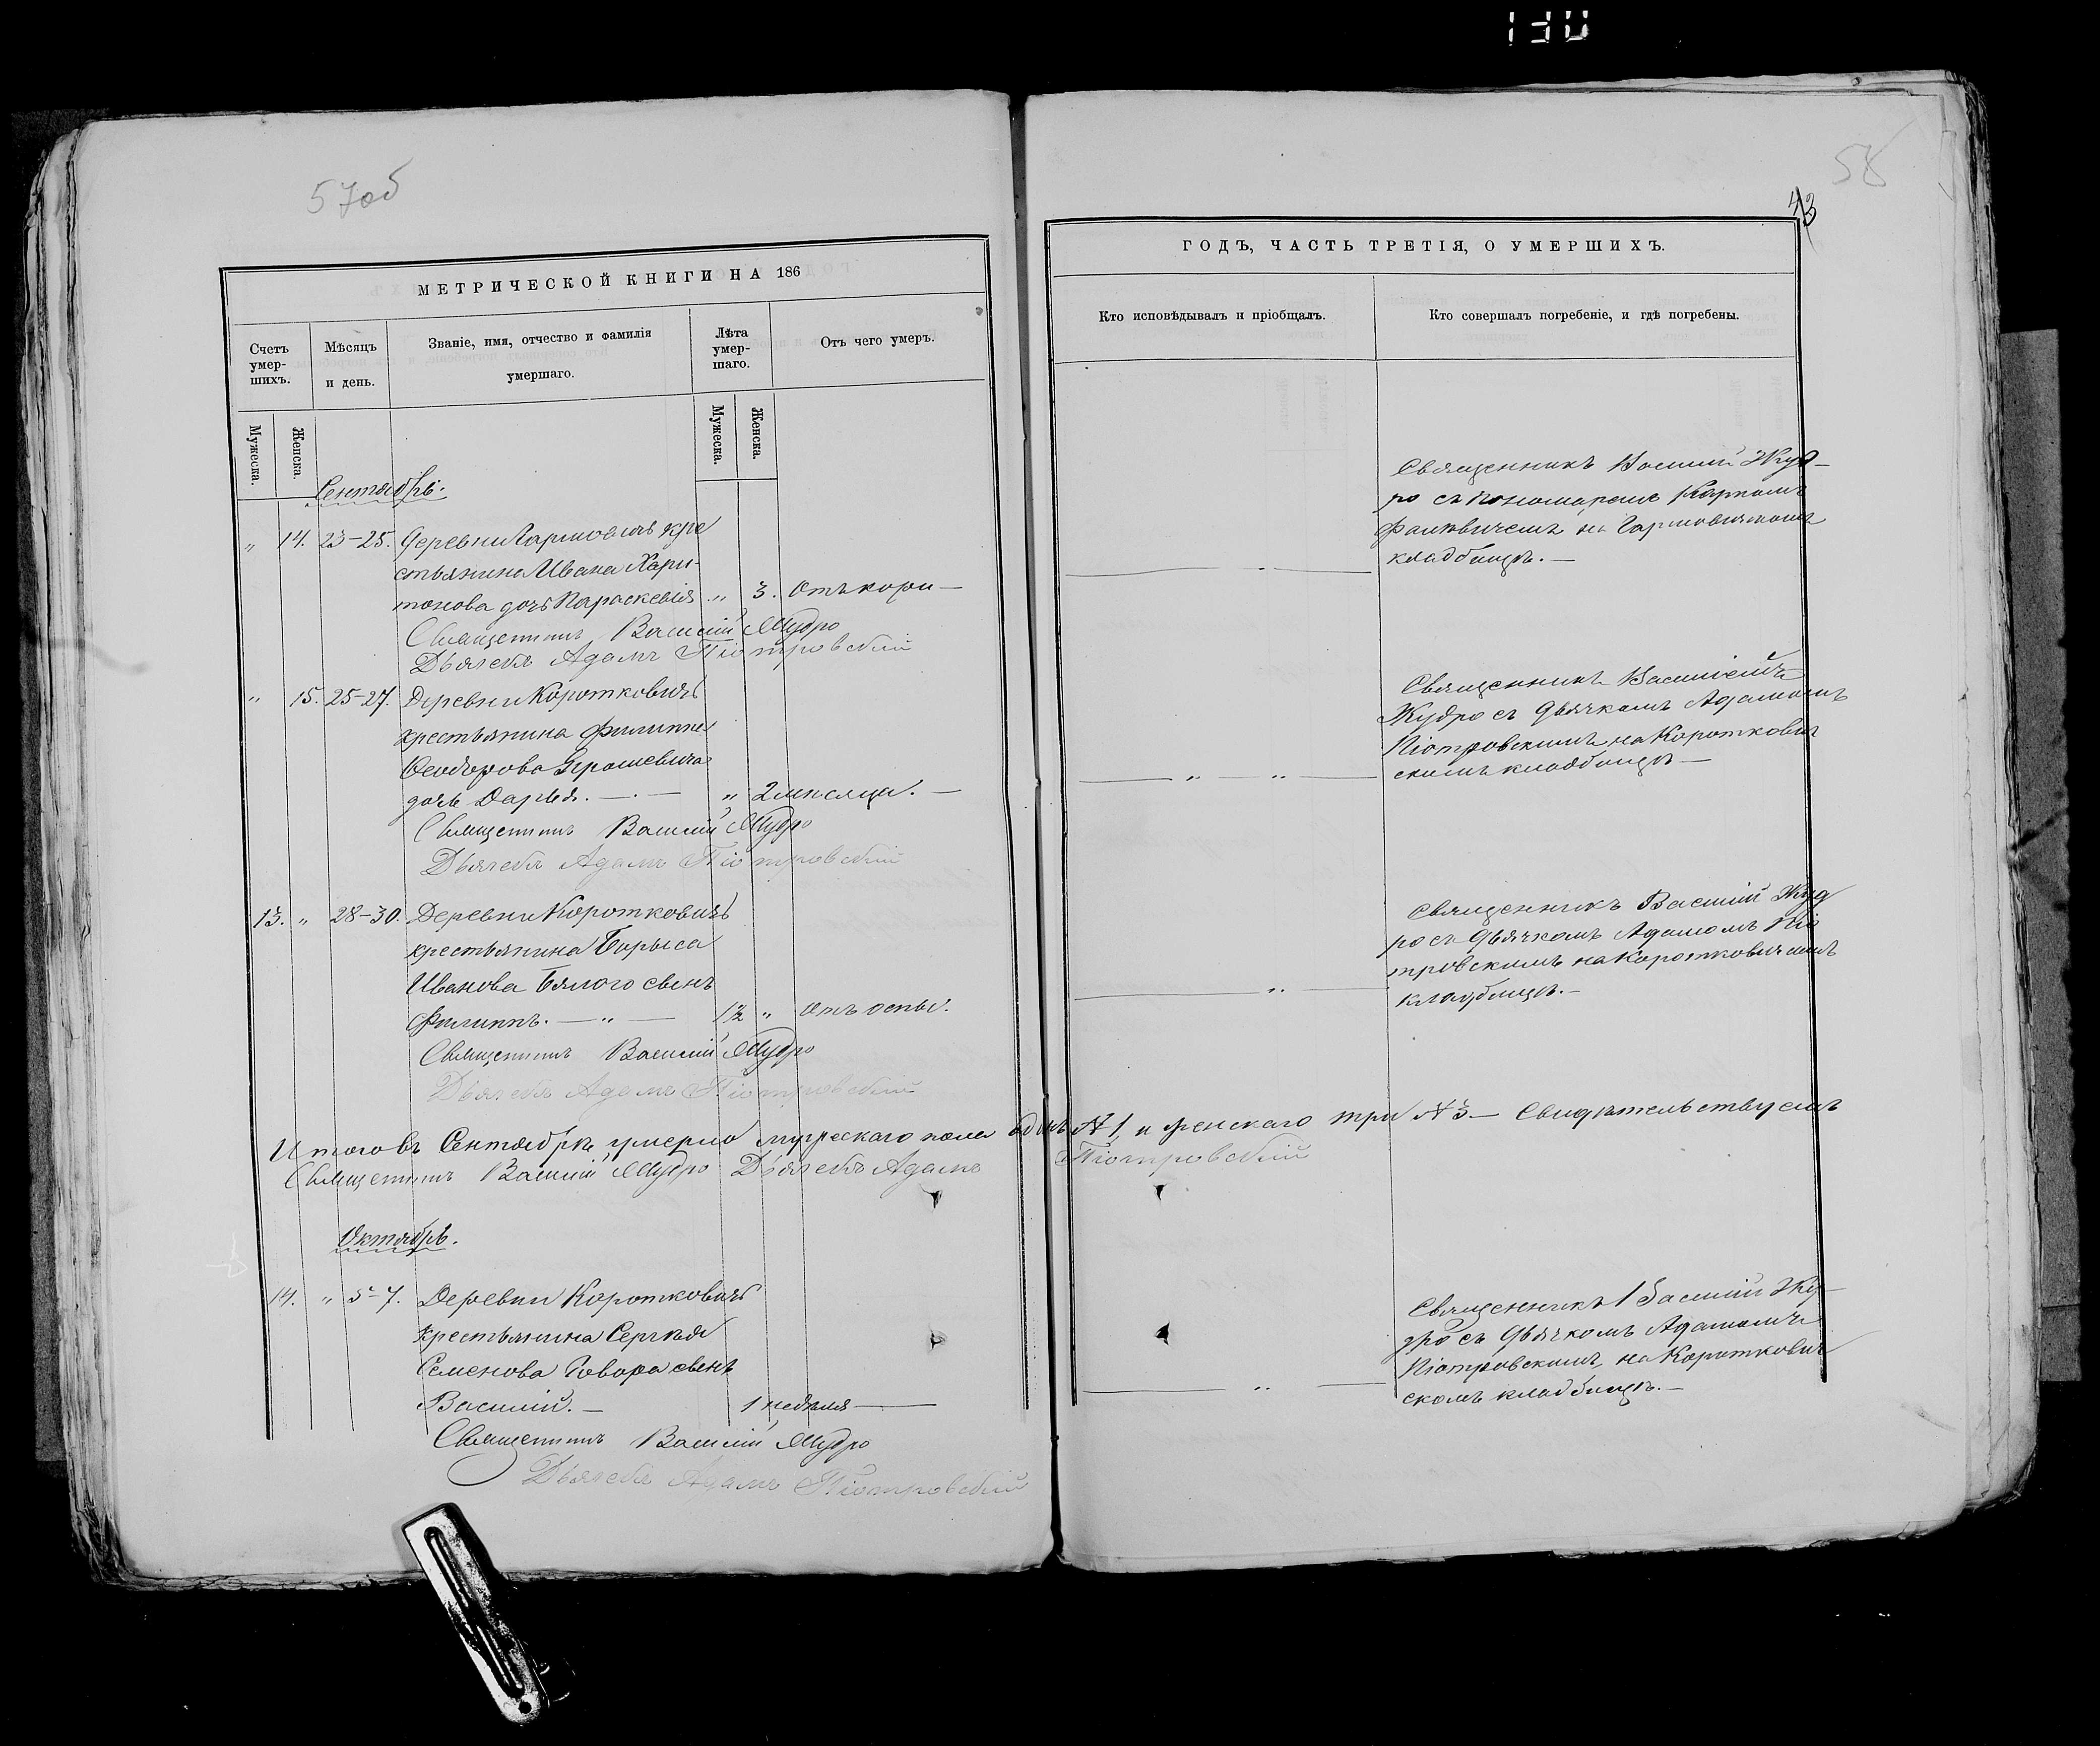 130
57об
МЕТРИЧЕСКОЙ КНИГИ НА 186
Счетъ умер-шихъ.
Мѣсяцъ и день.
Званіе, имя, отчество и фамилія умершаго.
Лѣта умер-шаго.
Отъ чего умеръ.
Мужеска.
Женска.
Мужеска.
Женска.
Сентябрь.
" 14. 23-25. Деревни Гармовичъ кре
стьянина Ивана Хари-
тонова дочь Параскевія " 3. Отъ кори —
Священникъ Василій Жудро
Дьячекъ Адамъ Піотровскій
" 15. 25-27. Деревни Короткевичъ
крестьянина Филиппа
Ѳеодорова
дочь Дарья. — " 2 мѣсяца. —
Священникъ Василій Жудро
Дьячекъ Адамъ Піотровскій
13. " 28-30. Деревни Коротковичъ
крестьянина Борыса
Иванова Бялого сынъ
Филиппъ. — " — 1½ " отъ оспы.
Священникъ Василій Жудро
Дьячекъ Адамъ Піотровскій
Итого въ Сентябрѣ умерло мужескаго пола одинъ № 1, и женскаго три № 3. — Свидѣтельствуемъ
Священникъ Василій Жудро Дьячекъ Адамъ Піотровскій
Октябрь.
14. " 5-7. Деревни Коротковичъ
крестьянина Сергѣя
Семенова Говора сынъ
Василій. — 1 недѣля —
Священникъ Василій Жудро
Дьячекъ Адамъ Піотровскій
58
43
ГОДЪ, ЧАСТЬ ТРЕТІЯ, О УМЕРШИХЪ.
Кто исповѣдывалъ и пріобщалъ.
Кто совершалъ погребеніе, и гдѣ погребены.
Священникъ Василій Жуд-
ро съ пономаремъ Карпомъ
на Гармовичскомъ
кладбищѣ. —
Священникъ Василіемъ
Жудро съ дьячкомъ Адамомъ
Піотровскимъ на Короткович
скомъ кладбищѣ —
Священникъ Василій Жуд
ро съ дьячкомъ Адамомъ Піо
тровскимъ на Коротковичскомъ
кладбищѣ. —
Священникъ Василій Жу-
дро съ дьячкомъ Адамомъ
Піотровскимъ, на Короткович
скомъ кладбищѣ. —